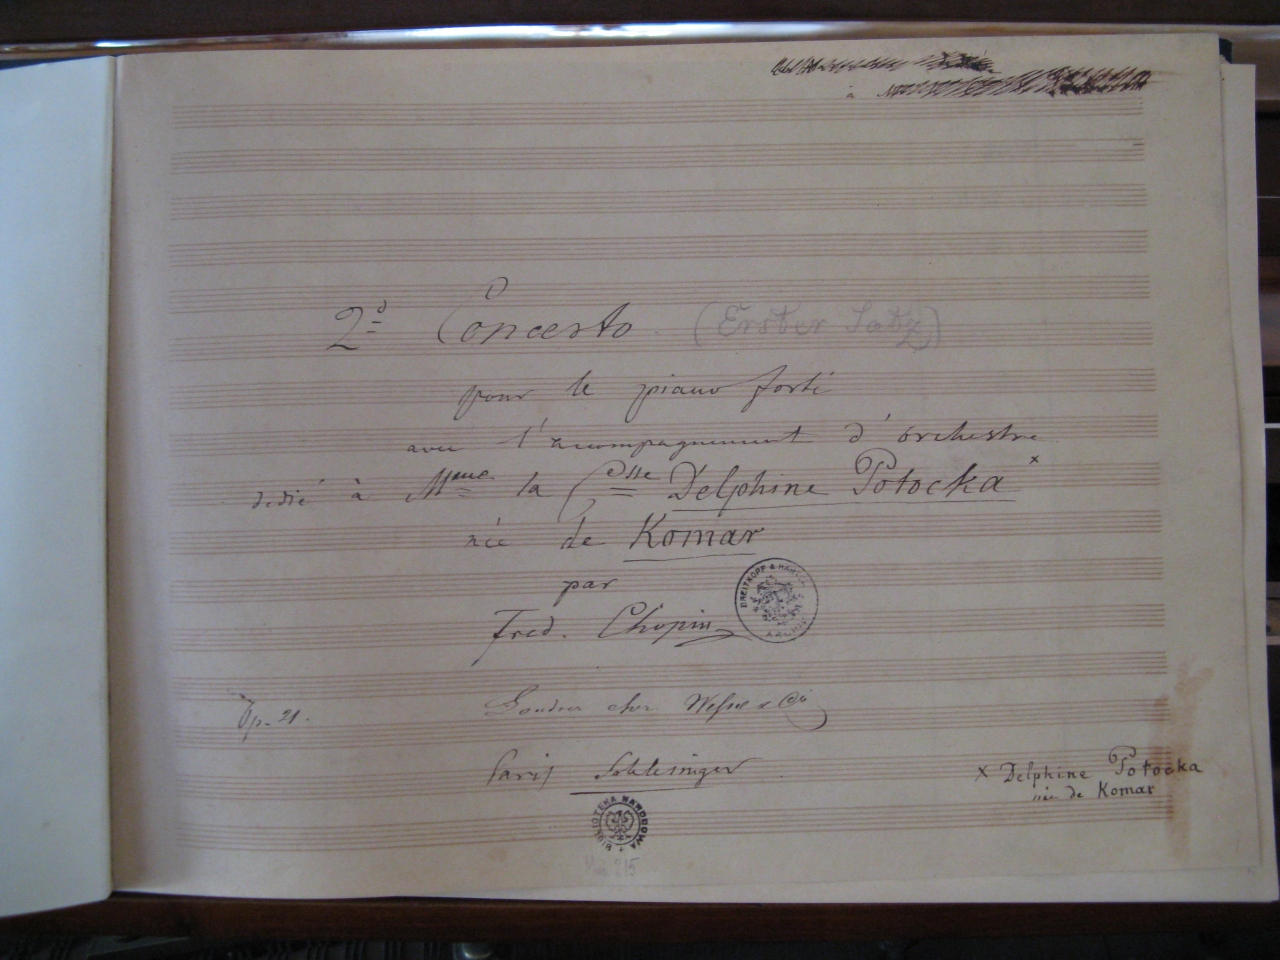 à
2d Concerto (Erster Satz)
pour le piano forte
avec l'accompagnement d'orchestre
dedié à Mme la Csse Delphine Potocka x
née de Komar
par
Fred. Chopin
BREITKOPF & HÄRTEL ARCHIV
Op. 21.
Londres chez Wessel & Co
Paris Schlesinger
x Delphine Potocka
née de Komar
BIBLIOTEKA NARODOWA
Mus. 215